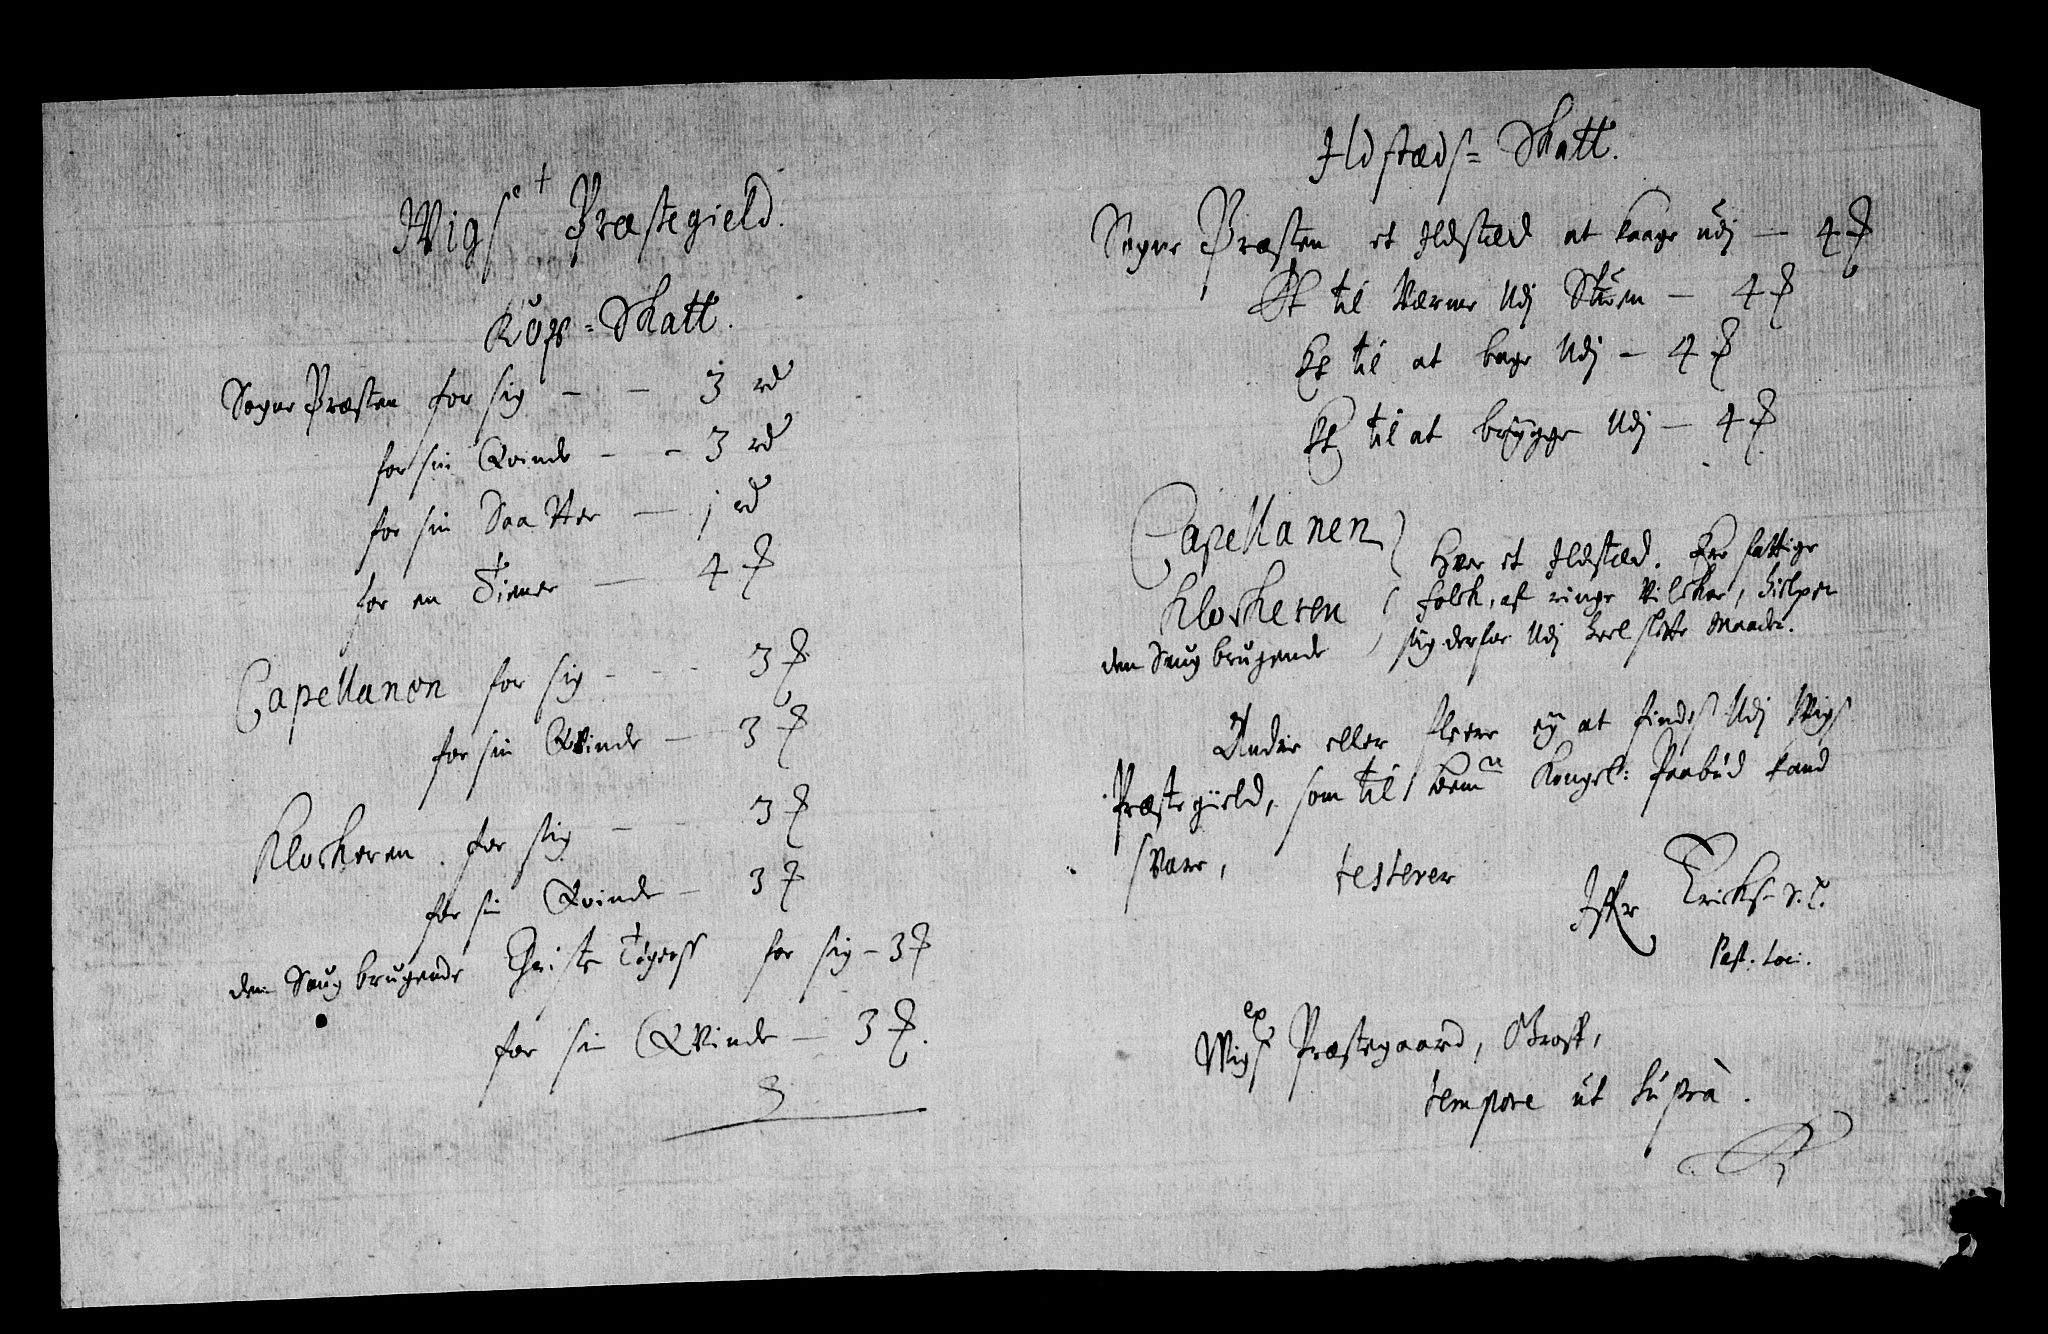 Wigs Præstegield.
Kops-Skatt.
Sogne Præsten for sig - - 3 rd
for sin Qvinde - - 3 rd
for sin Daatter - j rd
for en Tiener - 4 ℔
Capellanen for sig - - - 3 ℔
for sin Qvinde - 3 ℔
Klockeren for sig - - 3 ℔
for sin Qvinde - 3 ℔
den Saug brugende for sig - 3 ℔
for sin Qvinde - 3 ℔.
Ildstæds=Skatt.
Sogne Præsten et Ildstæd at kaage udj - 4 ℔
Et til Værme Udj Stuen - 4 ℔
Et til at bage Udj - 4 ℔
Et til at brygge Udj - 4 ℔
Capellanen
Klockeren
den Saug brugende
Hver et Ildstæd. Ere fattige
folck, af ringe Vilckor, hielper
sig derfor Udj heel slette Maader.
Andre eller fleere ey at findes Udj Wigs
Præstegield, som til bemn Kongel: Paabud kand
svare, testerer
Ericks. S.
Past. Loci.
Wigs Præstegaard,
tempore ut supra.